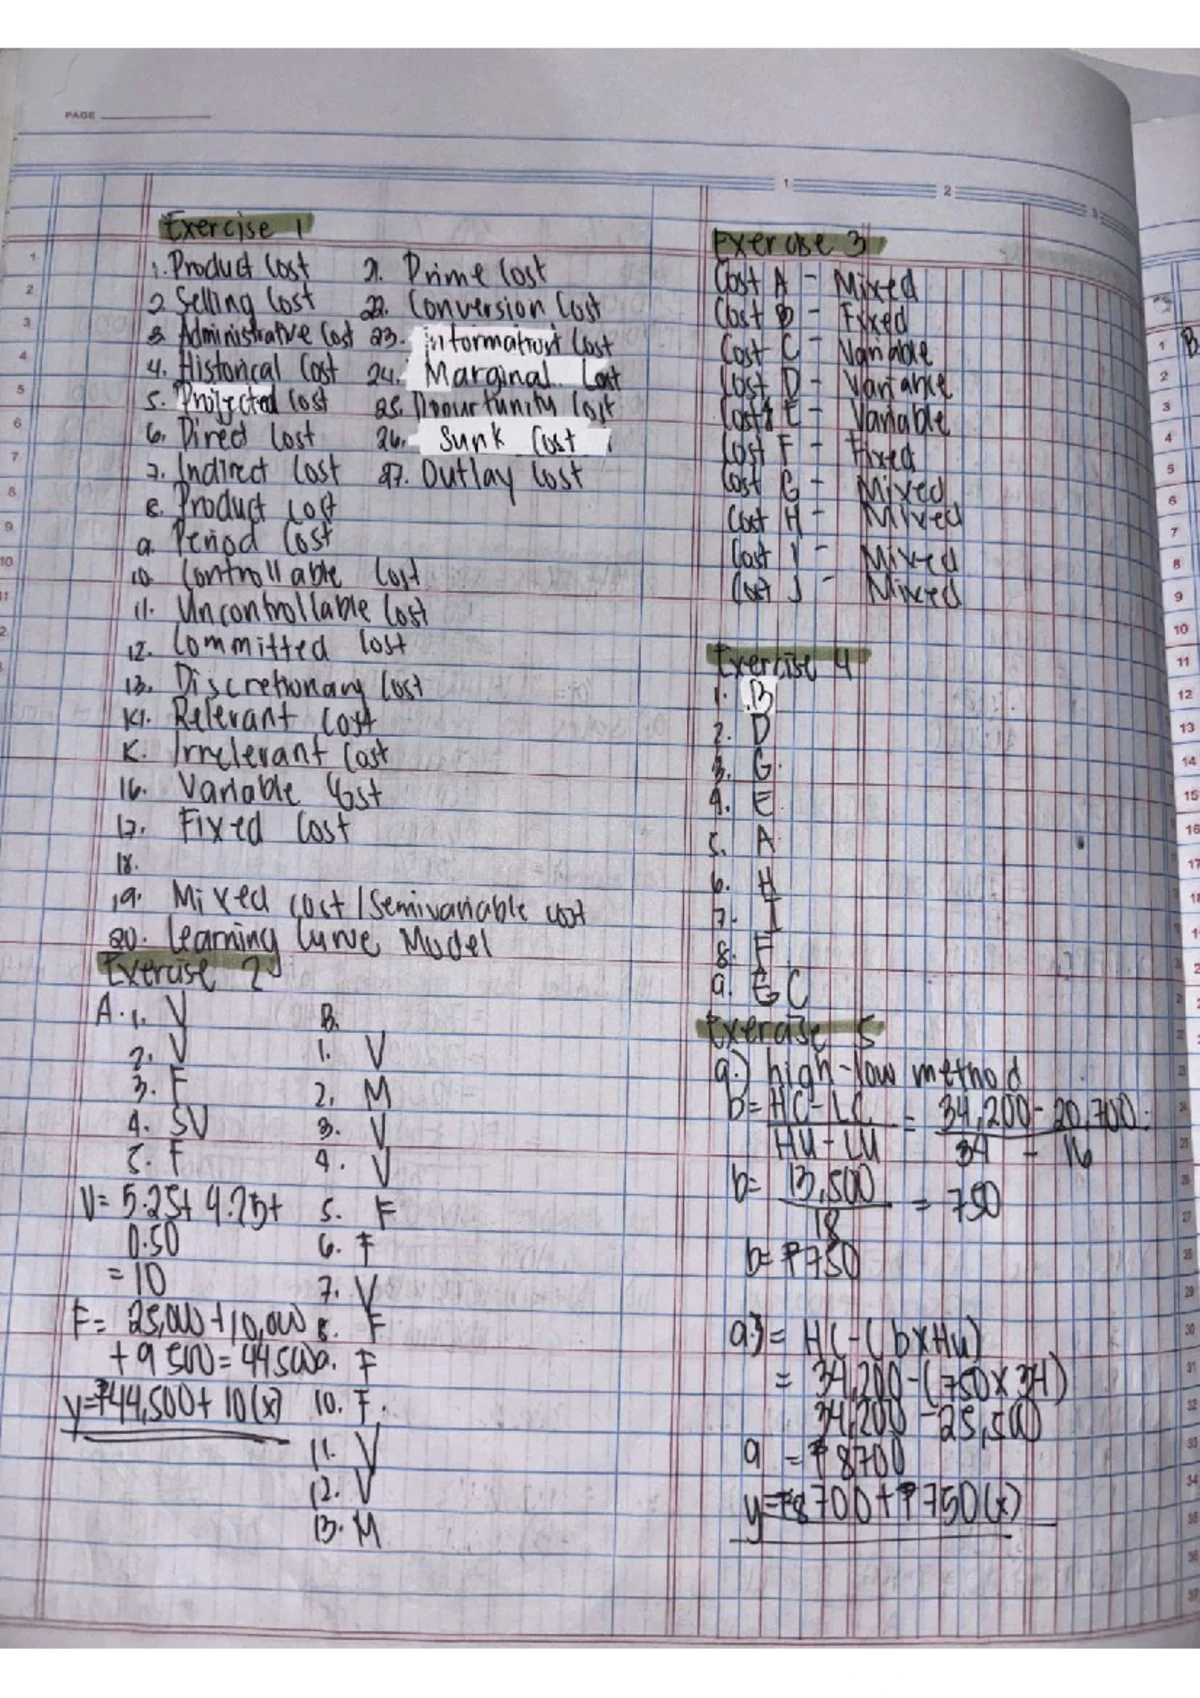 PAGE
Exercise 1
1. Product Cost
2. Selling Cost
3. Administrative Cost
4. Historical Cost
5. Projected Cost
6. Direct Cost
7. Indirect Cost
8. Product Cost
9. Period Cost
10. Controllable Cost
11. Uncontrollable Cost
12. Committed Cost
13. Discretionary Cost
14. Relevant Cost
15. Irrelevant Cost
16. Variable Cost
17. Fixed Cost
18.
19. Mixed cost / Semivariable cost
20. Learning Curve Model
21. Prime Cost
22. Conversion Cost
23. Information Cost
24. Marginal Cost
25. Opportunity Cost
26. Sunk Cost
27. Outlay Cost
Exercise 2
A. 1. V
2. V
3. F
4. SV
5. F
V = 5.25 + 4.25 +
0.50
= 10
F = 25,000 + 10,000
+ 9 500 = 44 500
y = ₱44,500 + 10(x)
B.
1. V
2. M
3. V
4. V
5. F
6. F
7. V
8. F
9. F
10. F.
11. V
12. V
13. M
Exercise 3
Cost A - Mixed
Cost B - Fixed
Cost C - Variable
Cost D - Variance
Cost E - Variable
Cost F - Fixed
Cost G - Mixed
Cost H - Mixed
Cost I - Mixed
Cost J - Mixed
Exercise 4
1. B
2. D
3. G
4. E
5. A
6. H
7. I
8. F
9. C
Exercise 5
a.) high-low method
b = HC - LC / HU - LU = 34,200 - 20,700 / 34 - 16
b = 13,500 / 18 = 750
b = ₱750
a.) = HC - (b x Hu)
= 34,200 - (750 x 34)
34,200 - 25,500
a = ₱8700
y = ₱8700 + ₱750(x)